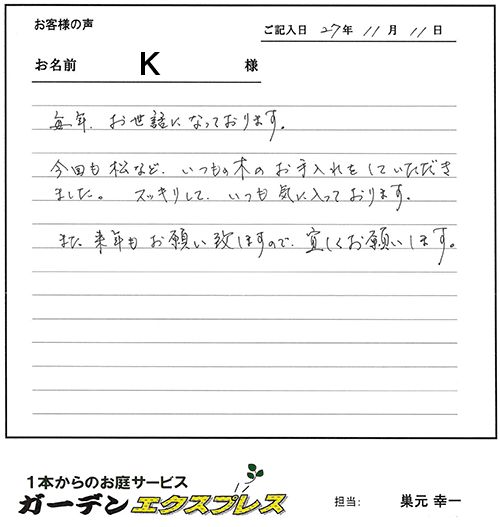 お客様の声
ご記入日 27年 11月 11日
お名前 K 様
毎年、お世話になっております。
今回も松など、いつもの木のお手入れをしていただき
ました。 スッキリして、いつも気に入っております。
また来年もお願い致しますので、宜しくお願いします。
1本からのお庭サービス
ガーデンエクスプレス
担当: 巣元 幸一